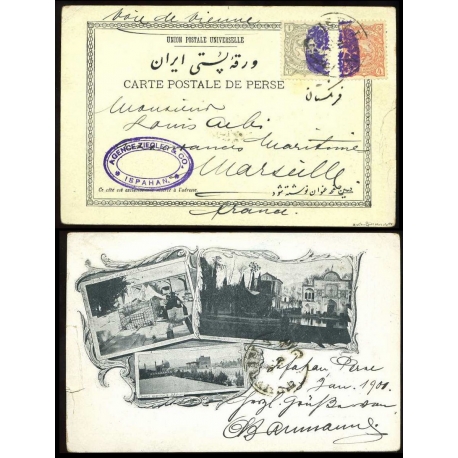 Voie de Vienne
UNION POSTALE UNIVERSELLE
ورقهٔ پستی ایران
CARTE POSTALE DE PERSE
فرنگستان
Monsieur
Louis
Maritime
Marseille
AGENCE ZIEGLER & CO.
ISPAHAN.
Ce côté est exclusivement réservé à l'adresse.
France
Ispahan Perse
Jan. 1901.
Herzl. Grüße von
Baumann